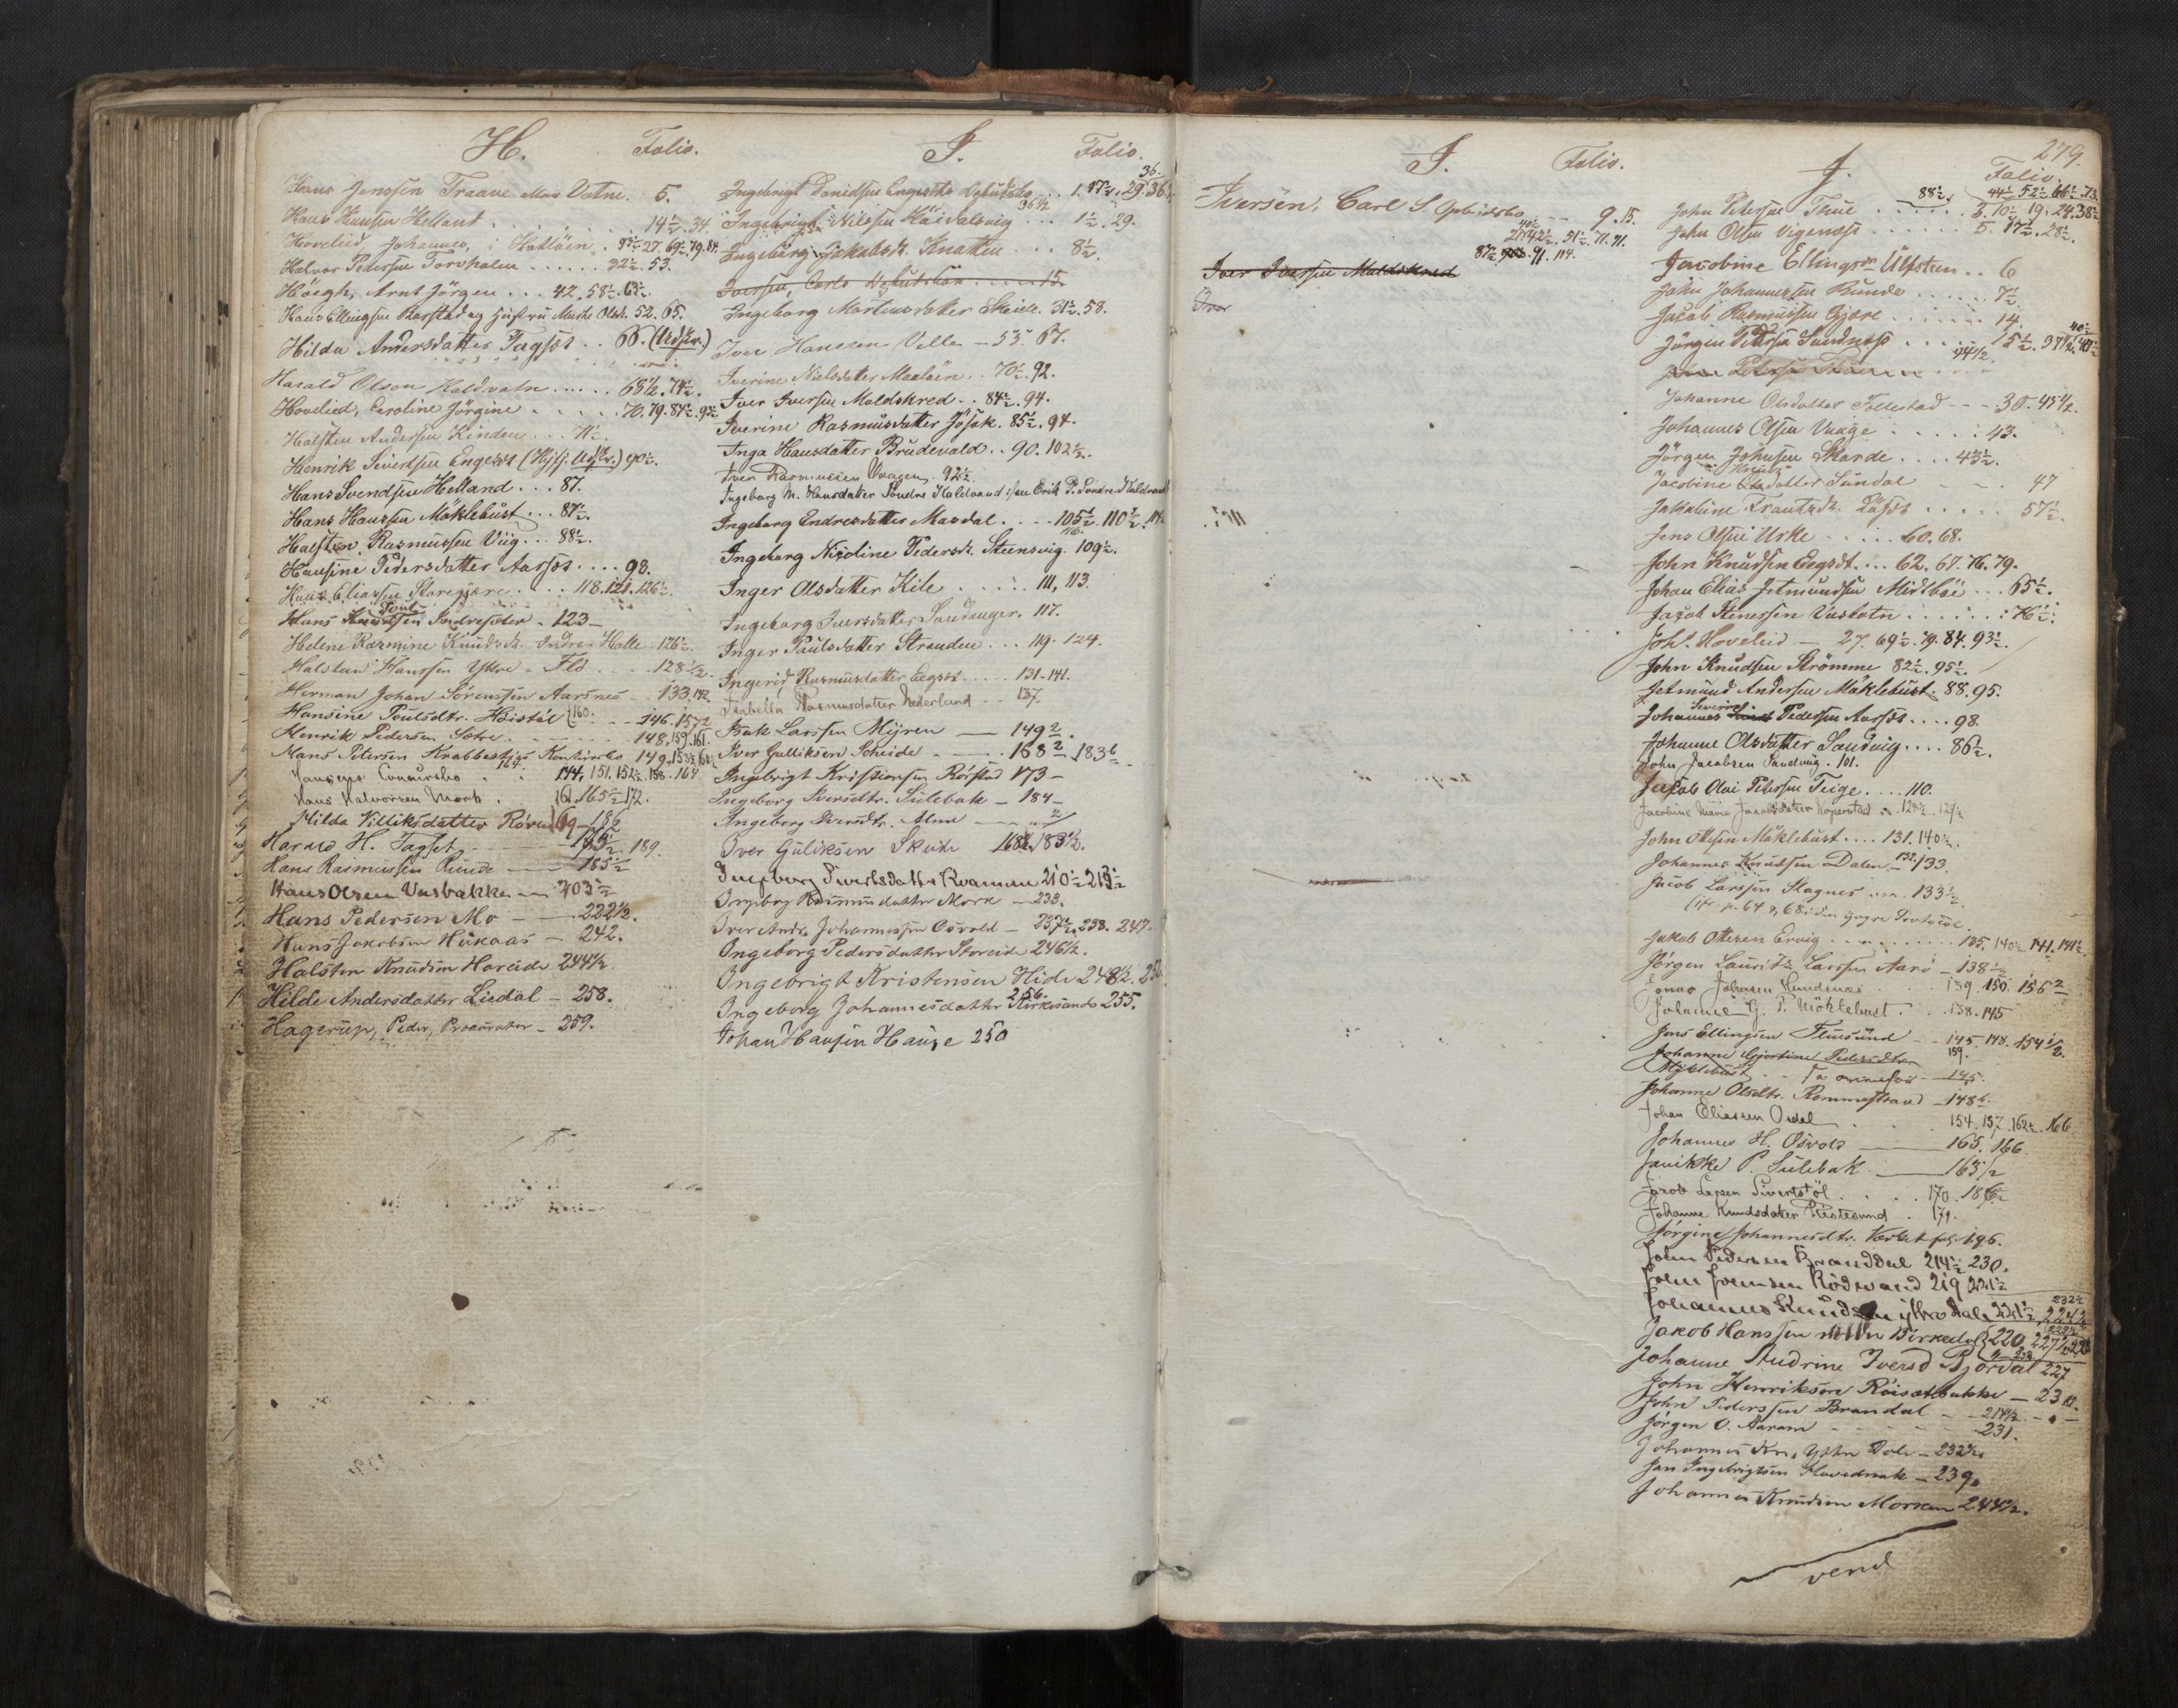 H. Folio.
Hans Jenssen Traave Vatne. 5.
Hans Hansen Helland . . . 14½. 34.
Hovelied, Johannes, i Hatløen . 27. 69½. 79. 84.
Halvor Pedersen Torvholm . . . . . . 32½. 53.
Höegh, Arnt Jörgen . . . 42. 58½. 63½.
Hans Ellingsen Barstad og Hustru 52. 65.
Hilda Andersdatter Tagset . . 66. (Udskr.)
Harald Olsen Kaldvatn . . . . . 68½. 74½.
Hovelied, Caroline Jörgine . . . . 70. 79. 84½. 93½.
Halsten Andersen Kinden . . . 71½.
Henrik Sivertsen Engeset (Udskr.) 90½.
Hans Svendsen Helland . . . 87.
Hans Hanssen Möklebust . . . 87½.
Halsten Rasmussen Viig . . . 88½.
Hansine Pedersdatter Aarset . . . . 98.
Hans Eliassen Storegjære . . . 118. 121. 126½.
Hans Indreeide . 123 –
Helene Rasmine Knudsd. Indre Halle . 126½.
Halsten Hanssen Yttre – Flø . . 128½.
Herman Johan Sörenssen Aarsnes – 133. 142.
Hansine Poulsdtr. Höistöl (160. – – 146. 157½
Henrik Pedersen Sætre . – – – 148. 159. 161.
Hans Petersen Knabbestigs Konkursbo 149. 153½.
Hanseys Concursbo . 164 . 144. 151. 152½. 158. 164.
Hans Halvorsen Mork . 161. 165½. 172.
Hilda Villiksdatter Røren 169 – 186
Harald H. Tagset 189.
Hans Rasmussen Runde — 185½
Hans Olsen Unsbakke — 203½
Hans Pedersen Mo – — 222½.
Hans Jakobsen Hukaas — 242.
Halsten Knudsen Hareide 244½.
Hilde Andersdatter Liedal – 258.
Hagerup, Peder, Procurator – 259.
I. Folio.
36.
Ingebrigt Davidsen Engesets Dødsbo . . 1. 17½. 29. 36½.
36½
Ingebrigt Nilssen Höidalsvig . . . 1½. 29.
Ingebörg Jakobsd. Knatten . . . 8½.
Iversen, Carls – – – 15.
Ingeborg Martinusdatter Skeide. 31½. 58.
Iver Hanssen Velle – 53. 67.
Iverine Nielsdatter Maaløen . . 70½. 92.
Iver Iversen Maldskred . . 84½. 94.
Iverine Rasmusdatter Jösok . 85½. 94.
Inga Hansdatter Brudevold . . 90. 102½.
Iver Rasmussen Vaagen . 92½.
Ingeborg M. Hansdatter Søndre Kaldvand Erik P. Søndre Kaldvand
Ingeborg Endresdatter Masdal . . . . 105½. 110½. 114½
Ingeborg Nicoline Pedersd. Steensvig. 109½.
Inger Olsdatter Kile . . . . . 111, 113.
Ingeborg Iversdatter Sandanger. 117.
Inger Paulsdatter Stranden . . . 119. 124.
Ingerid Rasmusdatter Eegset . . . . . 131 – 141.
Isabella Rasmusdatter Nederland . . . 137.
Isak Larssen Myren — 149½.
Iver Gulliksen Scheide . . . 168½. 183½.
Ingebrigt Kristiansen Rørstad 173 –
Ingeborg Iversdtr. Sulebak – 184 –
Ingeborg Iversdtr. Alme — "
Iver Guliksen Skeide 168½ 183½.
Ingeborg Sivertsdatter Kvamme 210½ 213½
Ingeborg Rasmusdatter Mork — 233.
Iver Andr. Johannessen Osvold – 237½. 238. 247.
Ingeborg Pedersdatter Storeide 246½.
Ingebrigt Kristensen Hide 248½.
256.
Ingeborg Johannesdatter Kirkesande 255.
Johan Hansen Hauge 250
I. Folio.
Iversen, Carl S. – – – 9. 15.
42½. 51½. 71. 91.
87½. 91. 114.
Iver Iversen Maldskred
Iver
279.
J. Folio.
88½. 44½ 52½ 66½. 73.
John Petersen Thue . . . . . 3. 10½. 19. 24. 38½
John Olsen Vigenæs . . . . . 5. 17½. 28½.
Jacobine Ellingsdr Ulfsten . . 6
John Johannessen Runde . . . . . . 7½.
Jacob Rasmussen Gjære . . . . . . 14.
Jörgen Petersen Sundnæs . . . . 15½. 37½.
Johanne Olsdatter Tollestad – – – 30. 45½.
Johannes Olsen Vaage . . . . . 43.
Jörgen Johnsen Skarde . . . . 43½.
Jacobine Sundal – – . 47
Jakobine Frantzd. Røset . . . . 57½.
Jens Olsen Urke . . . . . 60. 68.
John Knudsen Eegset . . . 62. 67. 76. 79.
Johan Elias Jetmundsen Midtbøe . . . 65½.
Jacob Stenssen Vastøtn . . . . . . 76½.
Joh. Hovelied — 27. 69½. 79. 84. 93½.
John Knudsen Strömme 82½. 95½.
Jetmund Andersen Möklebust. 88. 95.
Severine
Johannes Pedersen Aarset . . . . 98.
Johanne Olsdatter Sandvig . . . . 86½.
John Jacobsen Sandvig . 101.
Jakob Olai Petersen Teige . . . . 110.
Jacobine Marie Jacobsdatter Koperstad . . 128½. 129½
John Ottesen Möklebust . . . . 131. 140½.
Johannes Knudsen Dalen – 132. 133.
Jacob Larssen Slagnes . . . . 133½.
(jfr. p. 64 og 68 i den yngre Protocol.
Jakob Ottesen Ervig . . . . . . . . . 135. 140½. 141. 141½.
Jörgen Lauritz Larssen Aarø – 138½
Jonas Johnsen Sundnæs . . . 139. 150. 156½
Johanne G. P. Möklebust . . . 138. 145
Jens Ellingsen Flusund – – 145. 148. 154½.
Johanne Gjertine Pedersdtr 159.
Myklebust . . – 145.
Johanne Olsdtr. Rommestrand – 148½.
Johan Eliassen Ørdal . . . 154. 157. 162½. 166.
Johannes H. Osvold — 165. 166.
Janikke P. Sulebak — 165½
Jacob Sivertstøl . . . . 170. 186½
Johanne Knudsdatter Kistesund . 179.
Jörgine Johannesdtr. Værket fol. 196.
John Pedersen Branddal 214½ 230.
John Jonnsen Rødsvand 219 221½
232½
Johannes Knudsen ytre Dale 221½ 224½
Jakob Hanssen Birkedal 220. 227½
Johanne Andrine Iversd Bjørdal 227
John Henriksen Röisetbakke – 230.
John Pederssen Brandal – – 214½. – " –
Jörgen O. Aaram – – – – 231.
Johannes Kn. Ytre Dale – 232½.
Jan Ingebrigtsen Hovednak – 239.
Johannes Knudsen Morken 244½.
vend